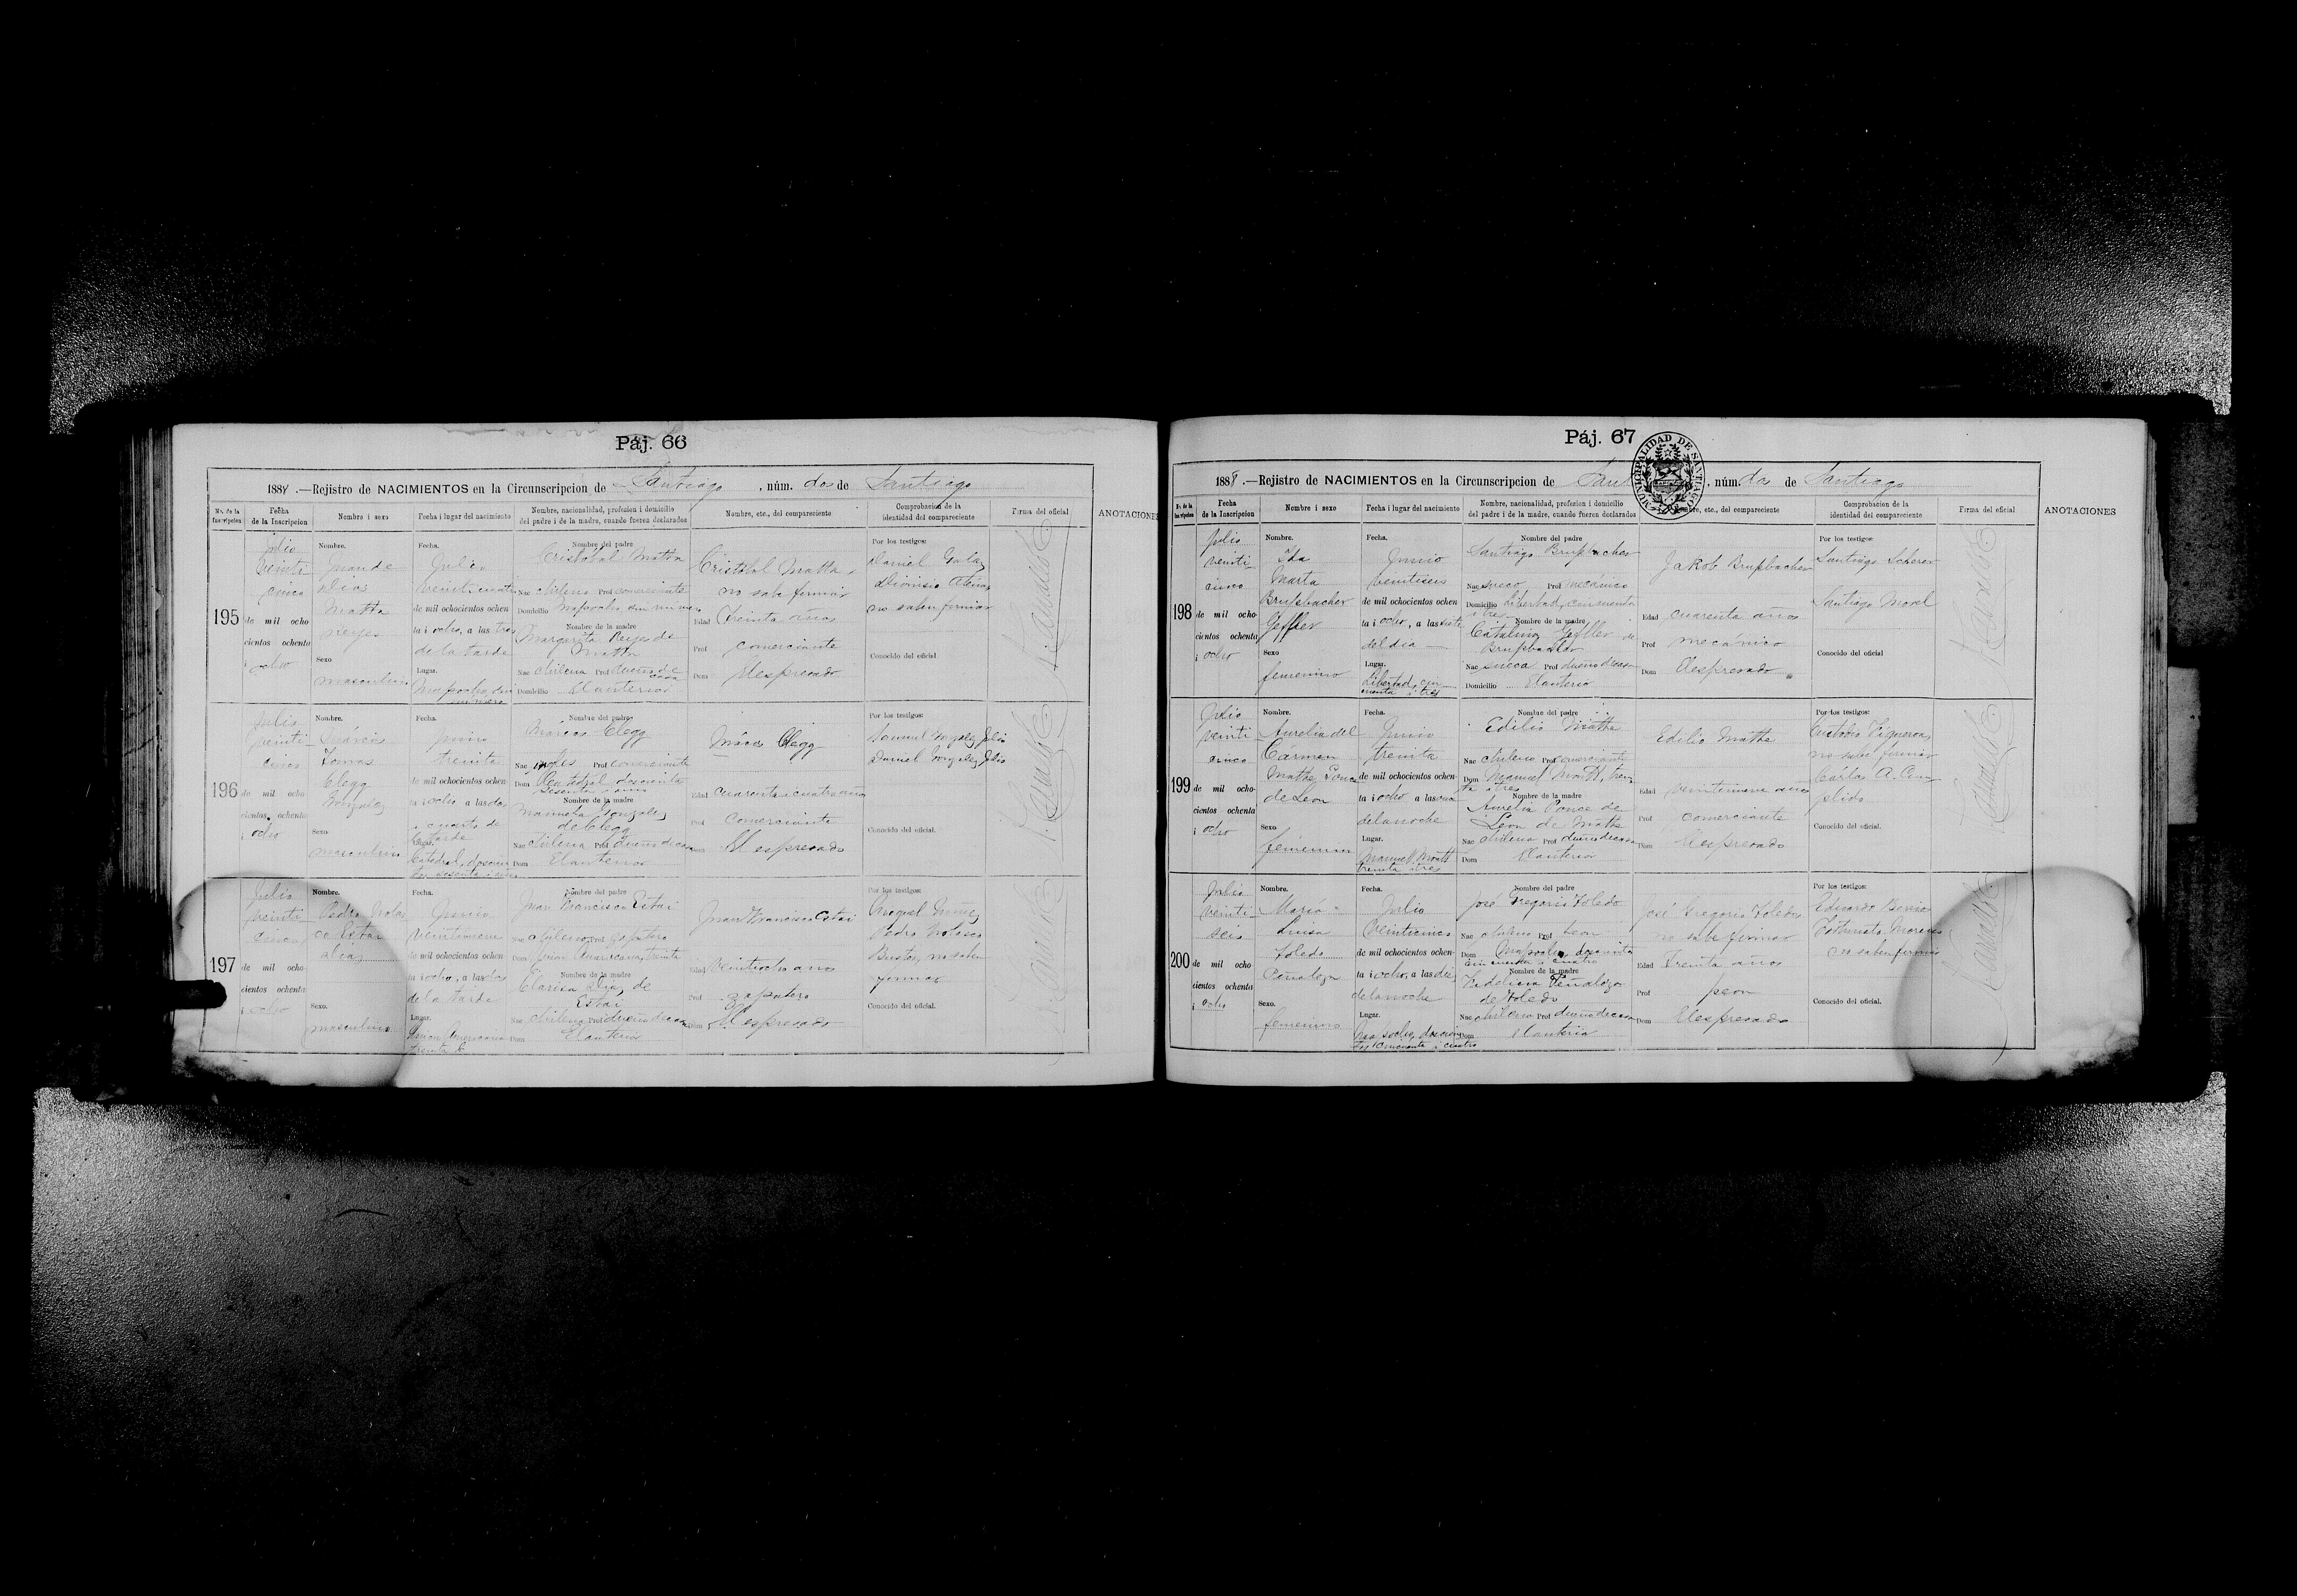 Páj. 66
1888.—Rejistro de NACIMIENTOS en la Circunscripcion de Santiago, núm. dos de Santiago
No. de la Inscripcion
Fecha de la Inscripcion
Nombre i sexo
Fecha i lugar del nacimiento
Nombre, nacionalidad, profesion i domicilio del padre i de la madre, cuando fueren declarados
Nombre, etc., del compareciente
Comprobacion de la identidad del compareciente
Firma del oficial
ANOTACIONES
195
Julio
veinti-
cinco
de mil ocho
cientos ochenta
i ocho
Nombre.
Juan de
Dios
Matta
Reyes
Sexo
masculino
Fecha.
Julio
veinticuatro
de mil ochocientos ochen
ta i ocho, a las tres
de la tarde
Lugar.
Mapocho, sin
número
Nombre del padre
Cristobal Matta
Nac chileno Prof comerciante
Domicilio Mapocho, sin número
Nombre de la madre
Margarita Reyes de
Matta
Nac chilena Prof dueña de
casa
Domicilio El anterior
Cristobal Matta
no sabe firmar
Edad treinta años
Prof comerciante
Dom El espresado
Por los testigos:
Daniel
Dionisio
no saben firmar
Conocido del oficial
196
Julio
veinti-
cinco
de mil ocho
cientos ochenta
i ocho
Nombre.
Márcos
Tomas
Clegg
Gonzalez
Sexo
masculino
Fecha.
junio
treinta
de mil ochocientos ochen
ta i ocho a las dos
i cuarto de
la tarde
Lugar.
Catedral, doscien
tos sesenta i uno
Nombre del padre
Márcos Clegg
Nac ingles Prof comerciante
Dom Catedral doscientos
sesenta i uno
Nombre de la madre
Manuela Gonzalez
de Clegg
Nac chilena Prof dueña de casa
Dom El anterior
Márcos Clegg
Edad cuarenta i cuatro años
Prof comerciante
Dom El espresado
Por los testigos:
Samuel Gonzalez Julio
Daniel Gonzalez Julio
Conocido del oficial.
197
Julio
veinti-
cinco
de mil ocho
cientos ochenta
i ocho
Nombre.
Pedro Nolas
co Estai
Dias
Sexo.
masculino
Fecha.
Junio
veintinueve
de mil ochocientos ochen
ta i ocho, a las dos
de la tarde
Lugar.
Union Americana
treinta
Nombre del padre
Juan Francisco Estai
Nac chileno Prof zapatero
Dom Union Americana, treinta
Nombre de la madre
Clarisa Diaz de
Estai
Nac chilena Prof dueña de casa
Dom El anterior
Juan Francisco Estai
Edad veintiocho años
Prof zapatero
Dom El espresado
Por los testigos:
Pedro Nolasco
Bustos, no saben
firmar
Conocido del oficial.
Páj. 67
MUNICIPALIDAD DE SANTIAGO
1888.—Rejistro de NACIMIENTOS en la Circunscripcion de Sant, núm. dos de Santiago
No. de la Inscripcion
Fecha de la Inscripcion
Nombre i sexo
Fecha i lugar del nacimiento
Nombre, nacionalidad, profesion i domicilio del padre i de la madre, cuando fueren declarados
Nombre, etc., del compareciente
Comprobacion de la identidad del compareciente
Firma del oficial
ANOTACIONES
198
Julio
veinti-
cinco
de mil ocho
cientos ochenta
i ocho
Nombre.
Ida
Marta
Brupbacher
Geffler
Sexo
femenino
Fecha.
Junio
veintiseis
de mil ochocientos ochen
ta i ocho, a las siete
del dia
Lugar.
Libertad, cin
cuenta i tres
Nombre del padre
Santiago Brupbacher
Nac sueco Prof mecánico
Domicilio Libertad, cincuenta
i tres
Nombre de la madre
Catalina Geffler de
Nac sueca Prof dueña de casa
Domicilio El anterior
Jakob Brupbacher
Edad cuarenta años
Prof mecánico
Dom El espresado
Por los testigos:
Santiago Scherer
Santiago Morel
Conocido del oficial
199
Julio
veinti-
cinco
de mil ocho-
cientos ochenta
i ocho
Nombre.
Aurelia del
Cármen
Mathe Ponce
de Leon
Sexo
femenino
Fecha.
Junio
treinta
de mil ochocientos ochen-
ta i ocho a las once
de la noche
Lugar.
Manuel Montt
treinta i tres
Nombre del padre
Edilio Mathe
Nac chileno Prof comerciante
Dom Manuel Montt, trein
ta i tres
Nombre de la madre
Aurelia Ponce de
Leon de Mathe
Nac chilena Prof dueña de casa
Dom El anterior
Edilio Mathe
Edad veintinueve años
Prof comerciante
Dom El espresado
Por los testigos:
Custodio Figueroa,
no sabe firmar
Cárlos A. Cum
plido
Conocido del oficial.
200
Julio
veinti-
seis
de mil ocho
cientos ochenta
i ocho
Nombre.
María
Luisa
Toledo
Peñaloza
Sexo.
femenino
Fecha.
Julio
veinticinco
de mil ochocientos ochen-
ta i ocho, a las diez
de la noche
Lugar.
Mapocho, doscien
tos cincuenta i cuatro
Nombre del padre
José Gregorio Toledo
Nac chileno Prof peon
Dom Mapocho, doscientos
cincuenta i cuatro
Nombre de la madre
Fidelicia Peñaloza
de Toledo
Nac chilena Prof dueña de casa
Dom El anterior
José Gregorio Toledo
no sabe firmar
Edad treinta años
Prof peon
Dom El espresado
Por los testigos:
Eduardo
Fortunato Moreno
no saben firmar
Conocido del oficial.